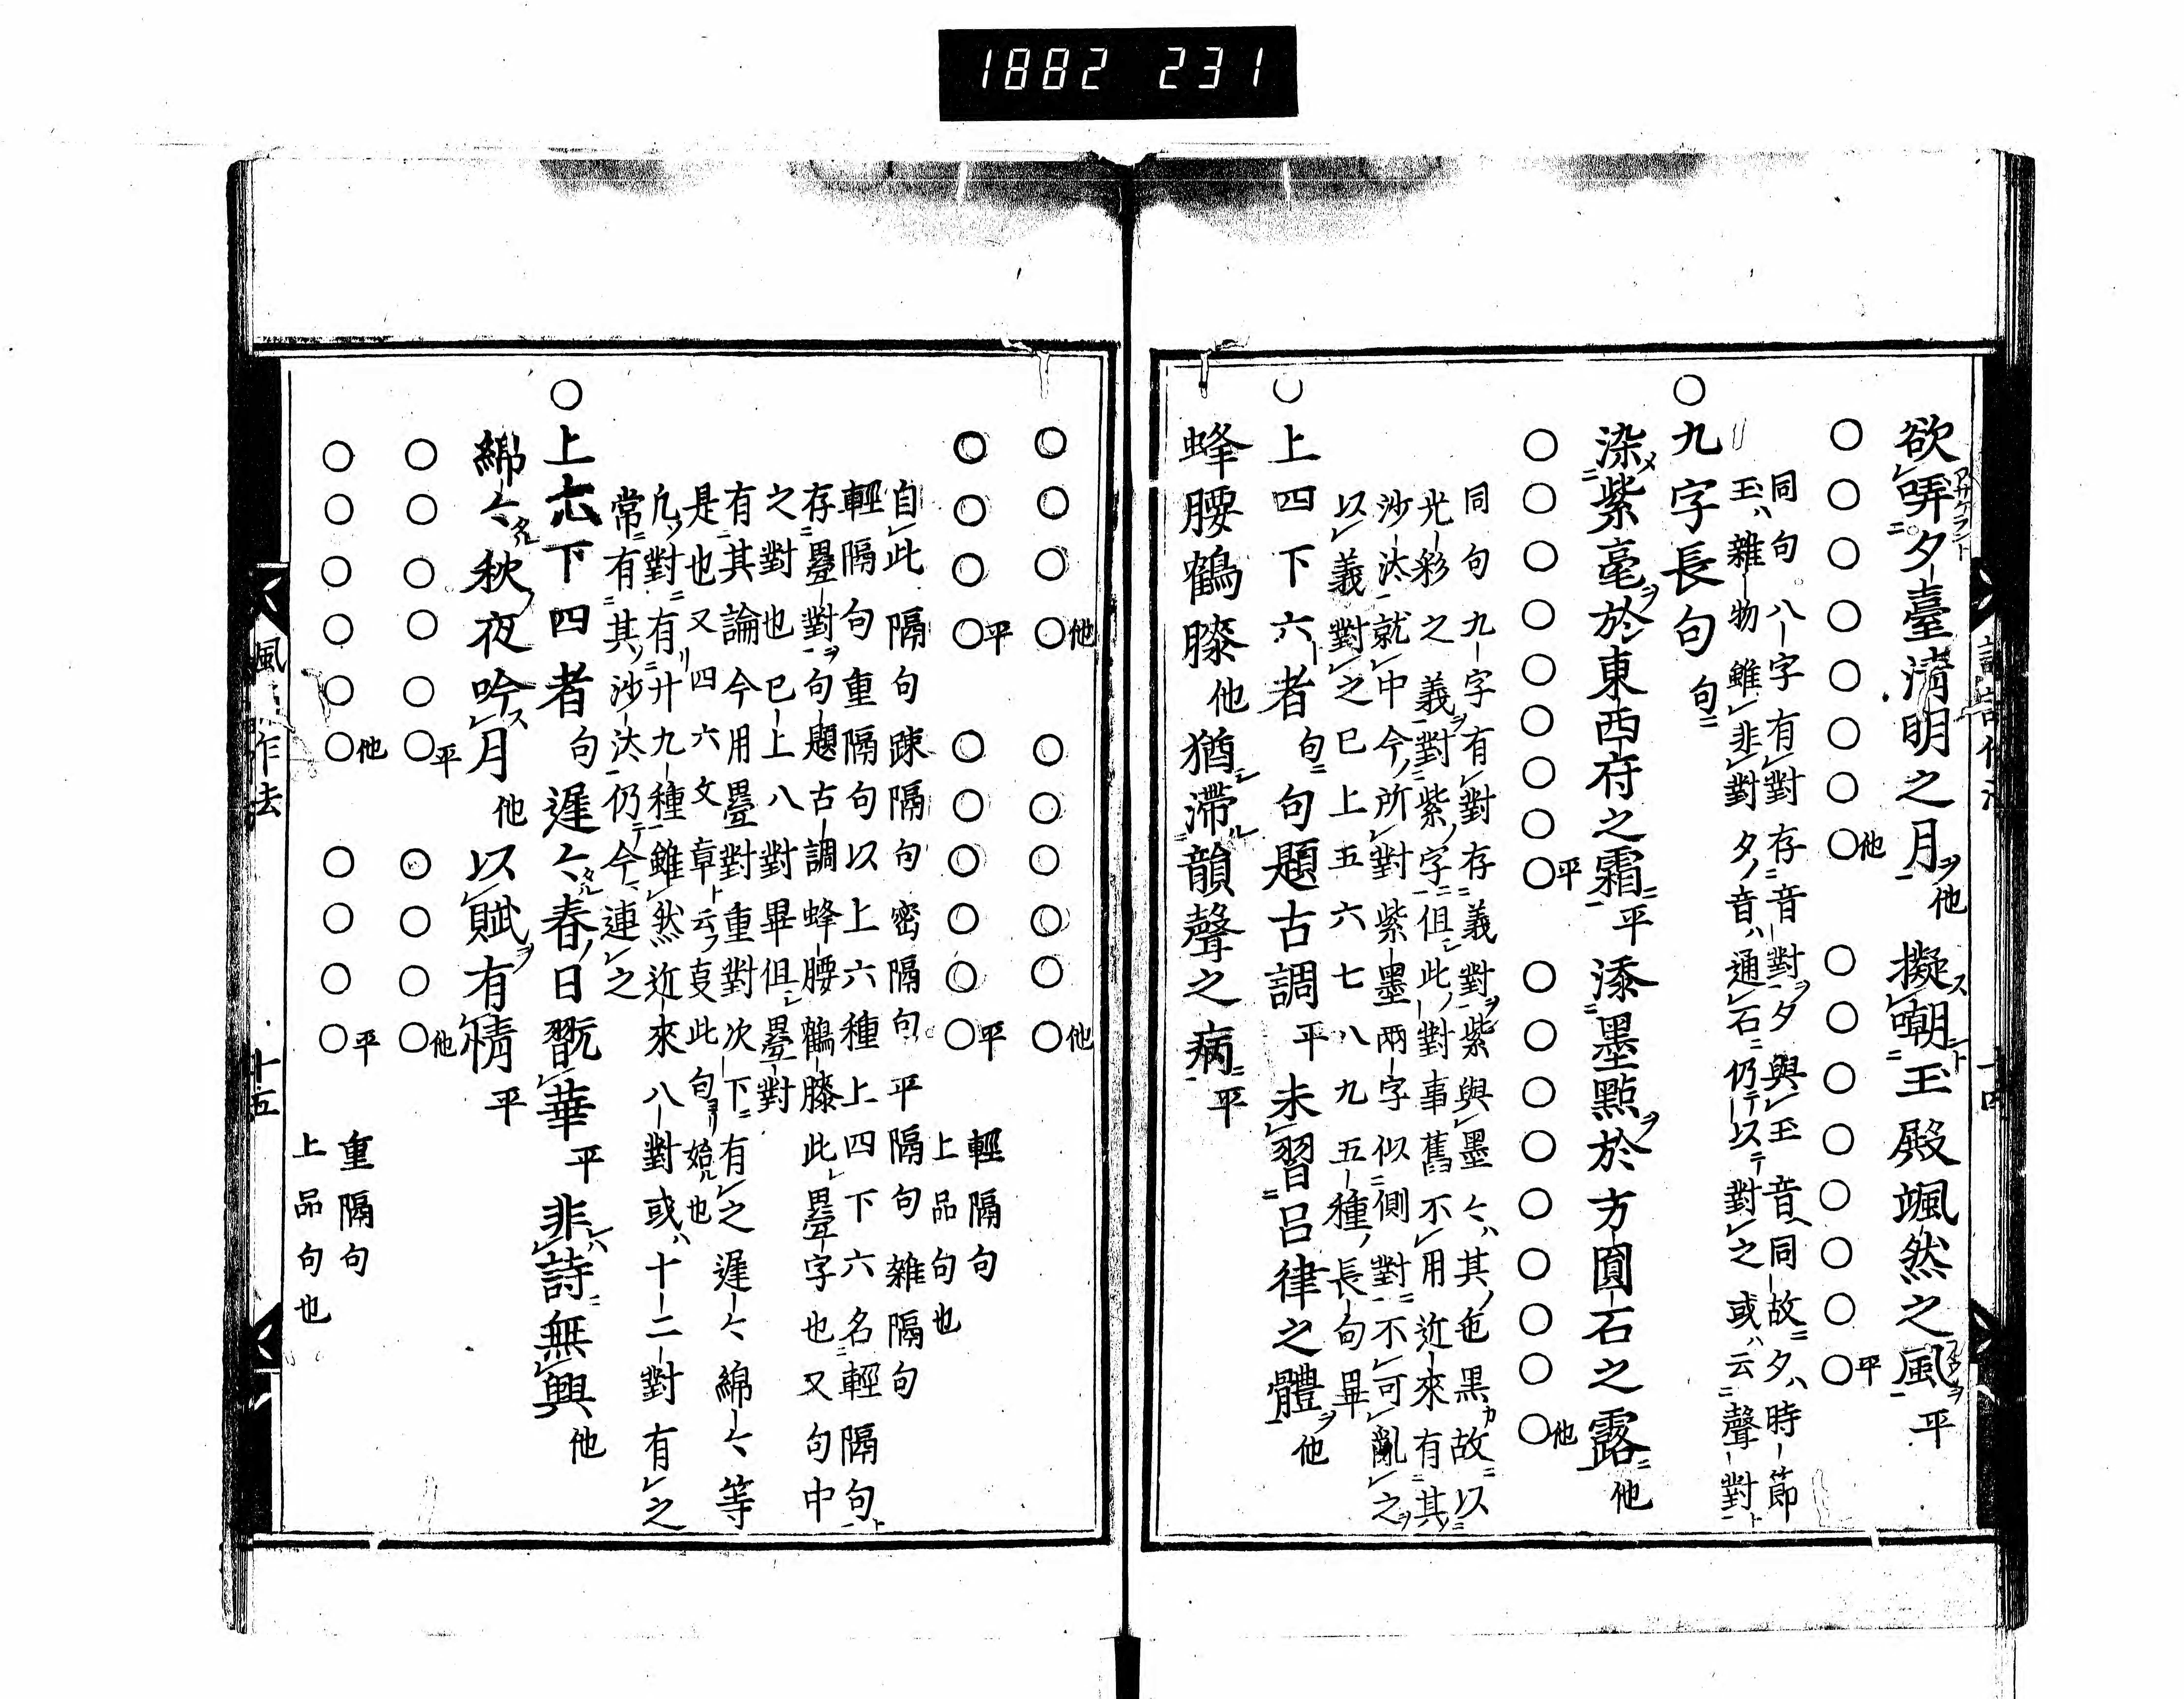 1882 231
欲哢夕臺清明之月他 擬嘲玉殿颯然之風平
○○○○○○○○他 ○○○○○○○○平
同句八字有對存音對夕與玉音同故夕時節
玉雜物雖非對夕音通石仍以對之或云聲對
○九字長句句
染紫毫於東西府之霜平 添墨點於方圓石之露他
○○○○○○○○○平 ○○○○○○○○○他
同句九字有對存義對紫與墨々其色黑故以
光彩之義對紫字但此對事舊不用近來有其
沙汰就中今所對紫墨兩字似側對不可亂之
以義對之已上五六七八九五種長句畢
○上四下六者句 句題古調平 未習呂律之體他
蜂腰鶴膝他 猶滯韻聲之病平
十四
○○○○他 ○○○○○○他
○○○○平 ○○○○○○平
輕隔句
上品句也
自此隔句踈隔句密隔句平隔句雜隔句
輕隔句重隔句以上六種上四下六名輕隔句
存疊對句題古調蜂腰鶴膝此疊字也又句中
之對也已上八對畢但疊對
有其論今用疊對重對次下有之遲々綿々等
是也又四六文章云叓此句始也
凢對有廾九種雖然近來八對或十二對有之
常有其沙汰仍今連之
○上六下四者句 遲々春日翫華平 非詩無興他
綿々秋夜吟月他 以賦有情平
○○○○○○平 ○○○○他
○○○○○○他 ○○○○平
重隔句
上品句也
作法 十五